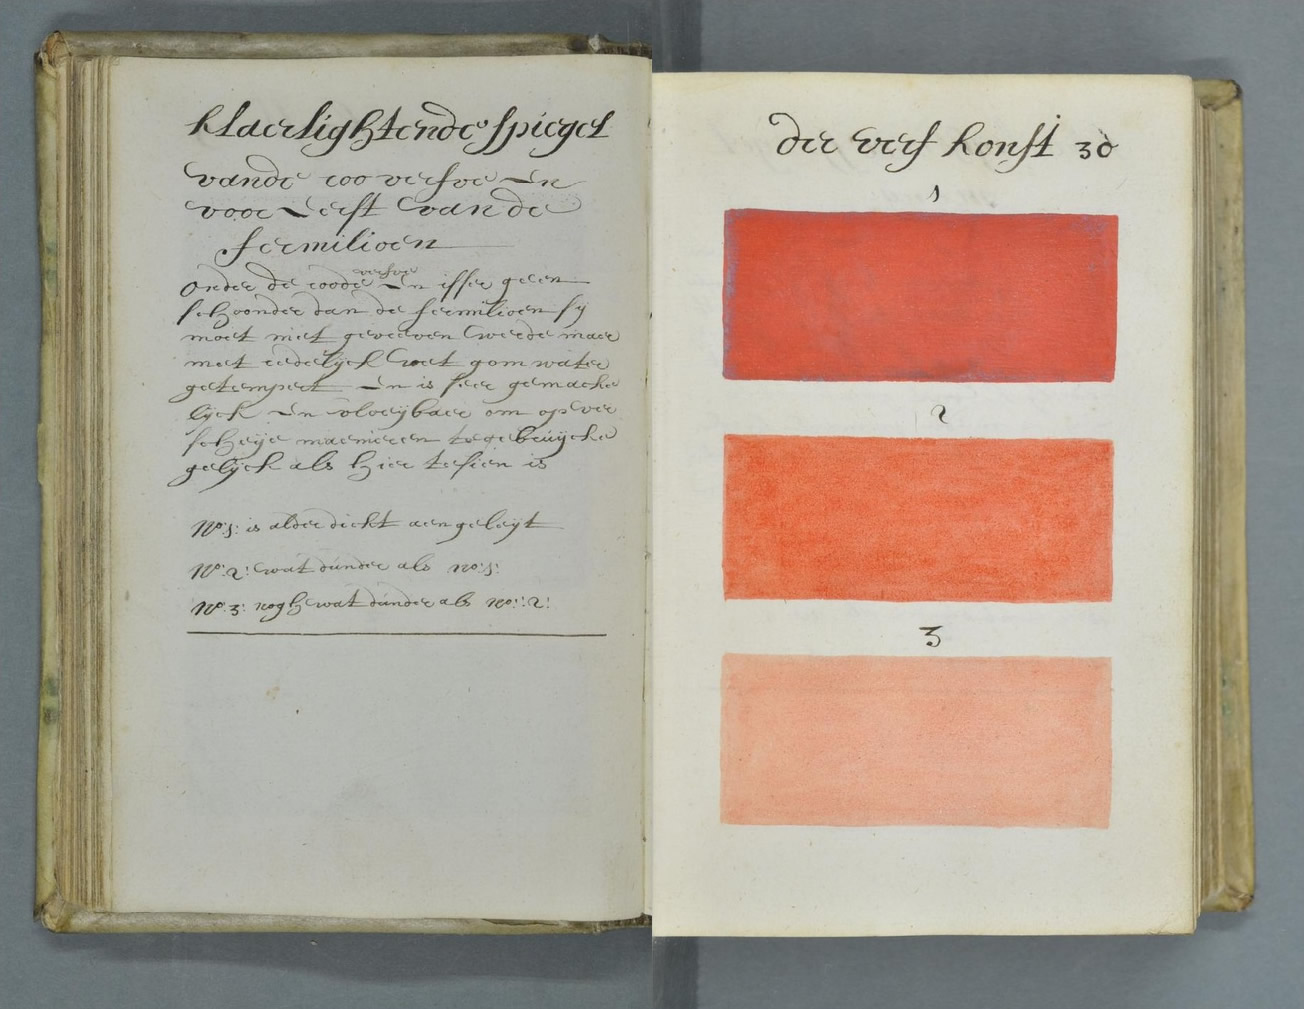 klaerlightende spiegel
vande roo verfve en
voor eerst van de
fermilioen
verfve
onder de roode en isser geen
schoonder dan de fermilioen sij
moet niet gevreven werde maer
met redelijck wet gom water
getempert en is seer gemacke
lijck en vloeijbaer om op ver
scheije manieren te gebruijcke
gelijck als hier te sien is
No:1: is alder dickt aen geleijt
No:2: wat dunder als no:1:
No:3: nogh wat dunder als no:2:
der verf konst 30
1
2
3